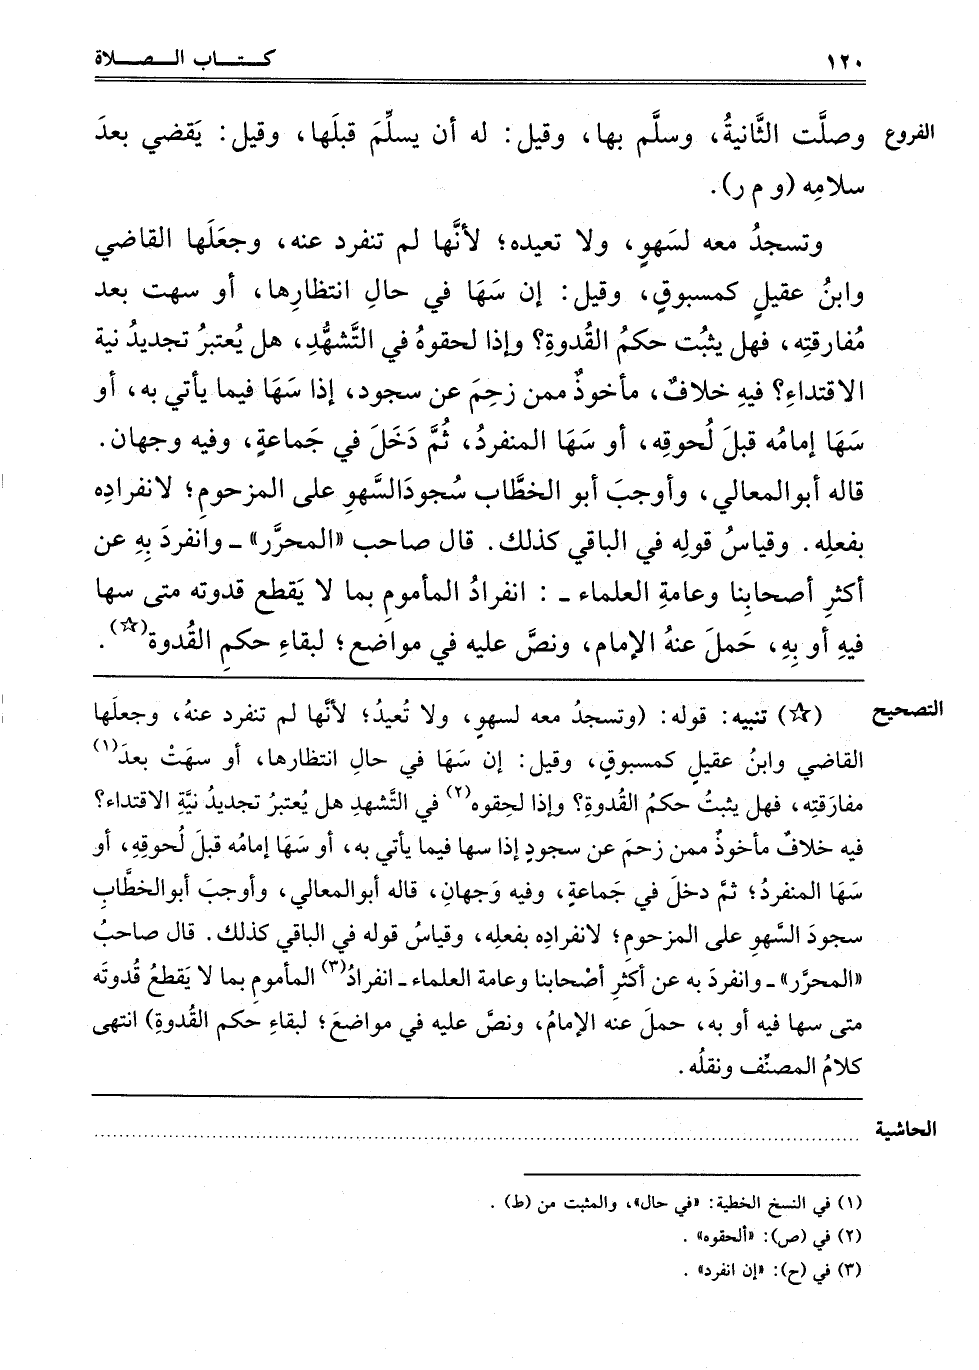 ١٢٠ كـتـــاب الـــصـــلاة
الفروع وصلَّت الثَّانيةُ، وسلَّم بها، وقيل: له أن يسلِّمَ قبلَها، وقيل: يَقضي بعدَ
سلامِه (و م ر).
وتسجدُ معه لسَهوٍ، ولا تعيده؛ لأنَّها لم تنفرد عنه، وجعَلَها القاضي
وابنُ عقيلٍ كمسبوقٍ، وقيل: إن سَهَا في حالِ انتظارِها، أو سهت بعد
مُفارقتِه، فهل يثبُت حكمُ القُدوةِ؟ وإذا لحقوهُ في التَّشهُّدِ، هل يُعتبرُ تجديدُ نية
الاقتداءِ؟ فيهِ خلافٌ، مأخوذٌ ممن زحِمَ عن سجود، إذا سَهَا فيما يأتي به، أو
سَهَا إمامُه قبلَ لُحوقِه، أو سَهَا المنفردُ، ثُمَّ دَخَلَ في جَماعةٍ، وفيه وجهان.
قاله أبوالمعالي، وأوجبَ أبو الخطَّاب سُجودَالسَّهوِ على المزحومِ؛ لانفرادِه
بفعلِه. وقياسُ قولِه في الباقي كذلك. قال صاحب «المحرَّر» ـ وانفردَ بِهِ عن
أكثرِ أصحابِنا وعامةِ العلماء ـ : انفرادُ المأمومِ بما لا يَقطع قدوته متى سها
فيهِ أو بِهِ، حَملَ عنهُ الإمام، ونصَّ عليه في مواضع؛ لبقاءِ حكمِ القُدوة(☆).
التصحيح (☆) تنبيه: قوله: (وتسجدُ معه لسهوٍ، ولا تُعيدُ؛ لأنَّها لم تنفرد عنهُ، وجعلَها
القاضي وابنُ عقيلٍ كمسبوقٍ، وقيل: إن سَهَا في حالِ انتظارها، أو سهَتْ بعدَ(١)
مفارَقتِه، فهل يثبتُ حكمُ القُدوةِ؟ وإذا لحِقوه(٢) في التَّشهدِ هل يُعتبرُ تجديدُ نيَّةِ الاقتداء؟
فيه خلافٌ مأخوذٌ ممن زحمَ عن سجودٍ إذا سها فيما يأتي به، أو سَهَا إمامُه قبلَ لُحوقِهِ، أو
سَهَا المنفردُ؛ ثمَّ دخلَ في جَماعةٍ، وفيه وَجهانِ، قاله أبوالمعالي، وأوجبَ أبوالخطَّابِ
سجودَ السَّهوِ على المزحومِ؛ لانفرادِه بفعلِه، وقياسُ قوله في الباقي كذلك. قال صاحبُ
«المحرَّر» ـ وانفردَ به عن أكثرِ أصْحابنا وعامة العلماء ـ انفرادُ(٣) المأموم بما لا يَقطعُ قُدوتَه
متى سها فيه أو به، حملَ عنه الإمامُ، ونصَّ عليه في مواضعَ؛ لبقاءِ حكم القُدوةِ) انتهى
كلامُ المصنِّف ونقلُه.
الحاشية ................................................
(١) في النسخ الخطية: «في حال»، والمثبت من (ط) .
(٢) في (ص): «ألحقوه» .
(٣) في (ح): «إن انفرد» .